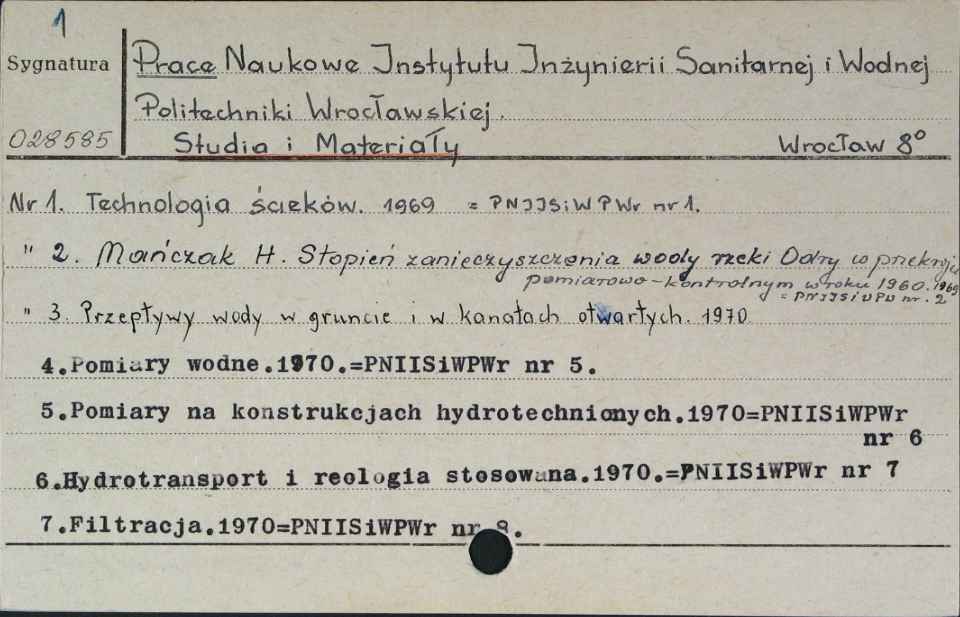 1
Sygnatura
Prace Naukowe Instytutu Inżynierii Sanitarnej i Wodnej
Politechniki Wrocławskiej.
028585
Studia i Materiały Wrocław 8°
Nr 1. Technologia ścieków. 1969 = PNIISiWPWr nr 1.
" 2. Mańczak H. Stopień zanieczyszczenia wody rzeki Odry w przekroju
pomiarowo-kontrolnym w roku 1960. 1969
= PNIISiWPW nr. 2
" 3. Przepływy wody w gruncie i w kanałach otwartych. 1970
4.Pomiary wodne.1970.=PNIISiWPWr nr 5.
5.Pomiary na konstrukcjach hydrotechnicnych.1970=PNIISiWPWr
nr 6
6.Hydrotransport i reologia stosowana.1970.=PNIISiWPWr nr 7
7.Filtracja.1970=PNIISiWPWr nr 8.